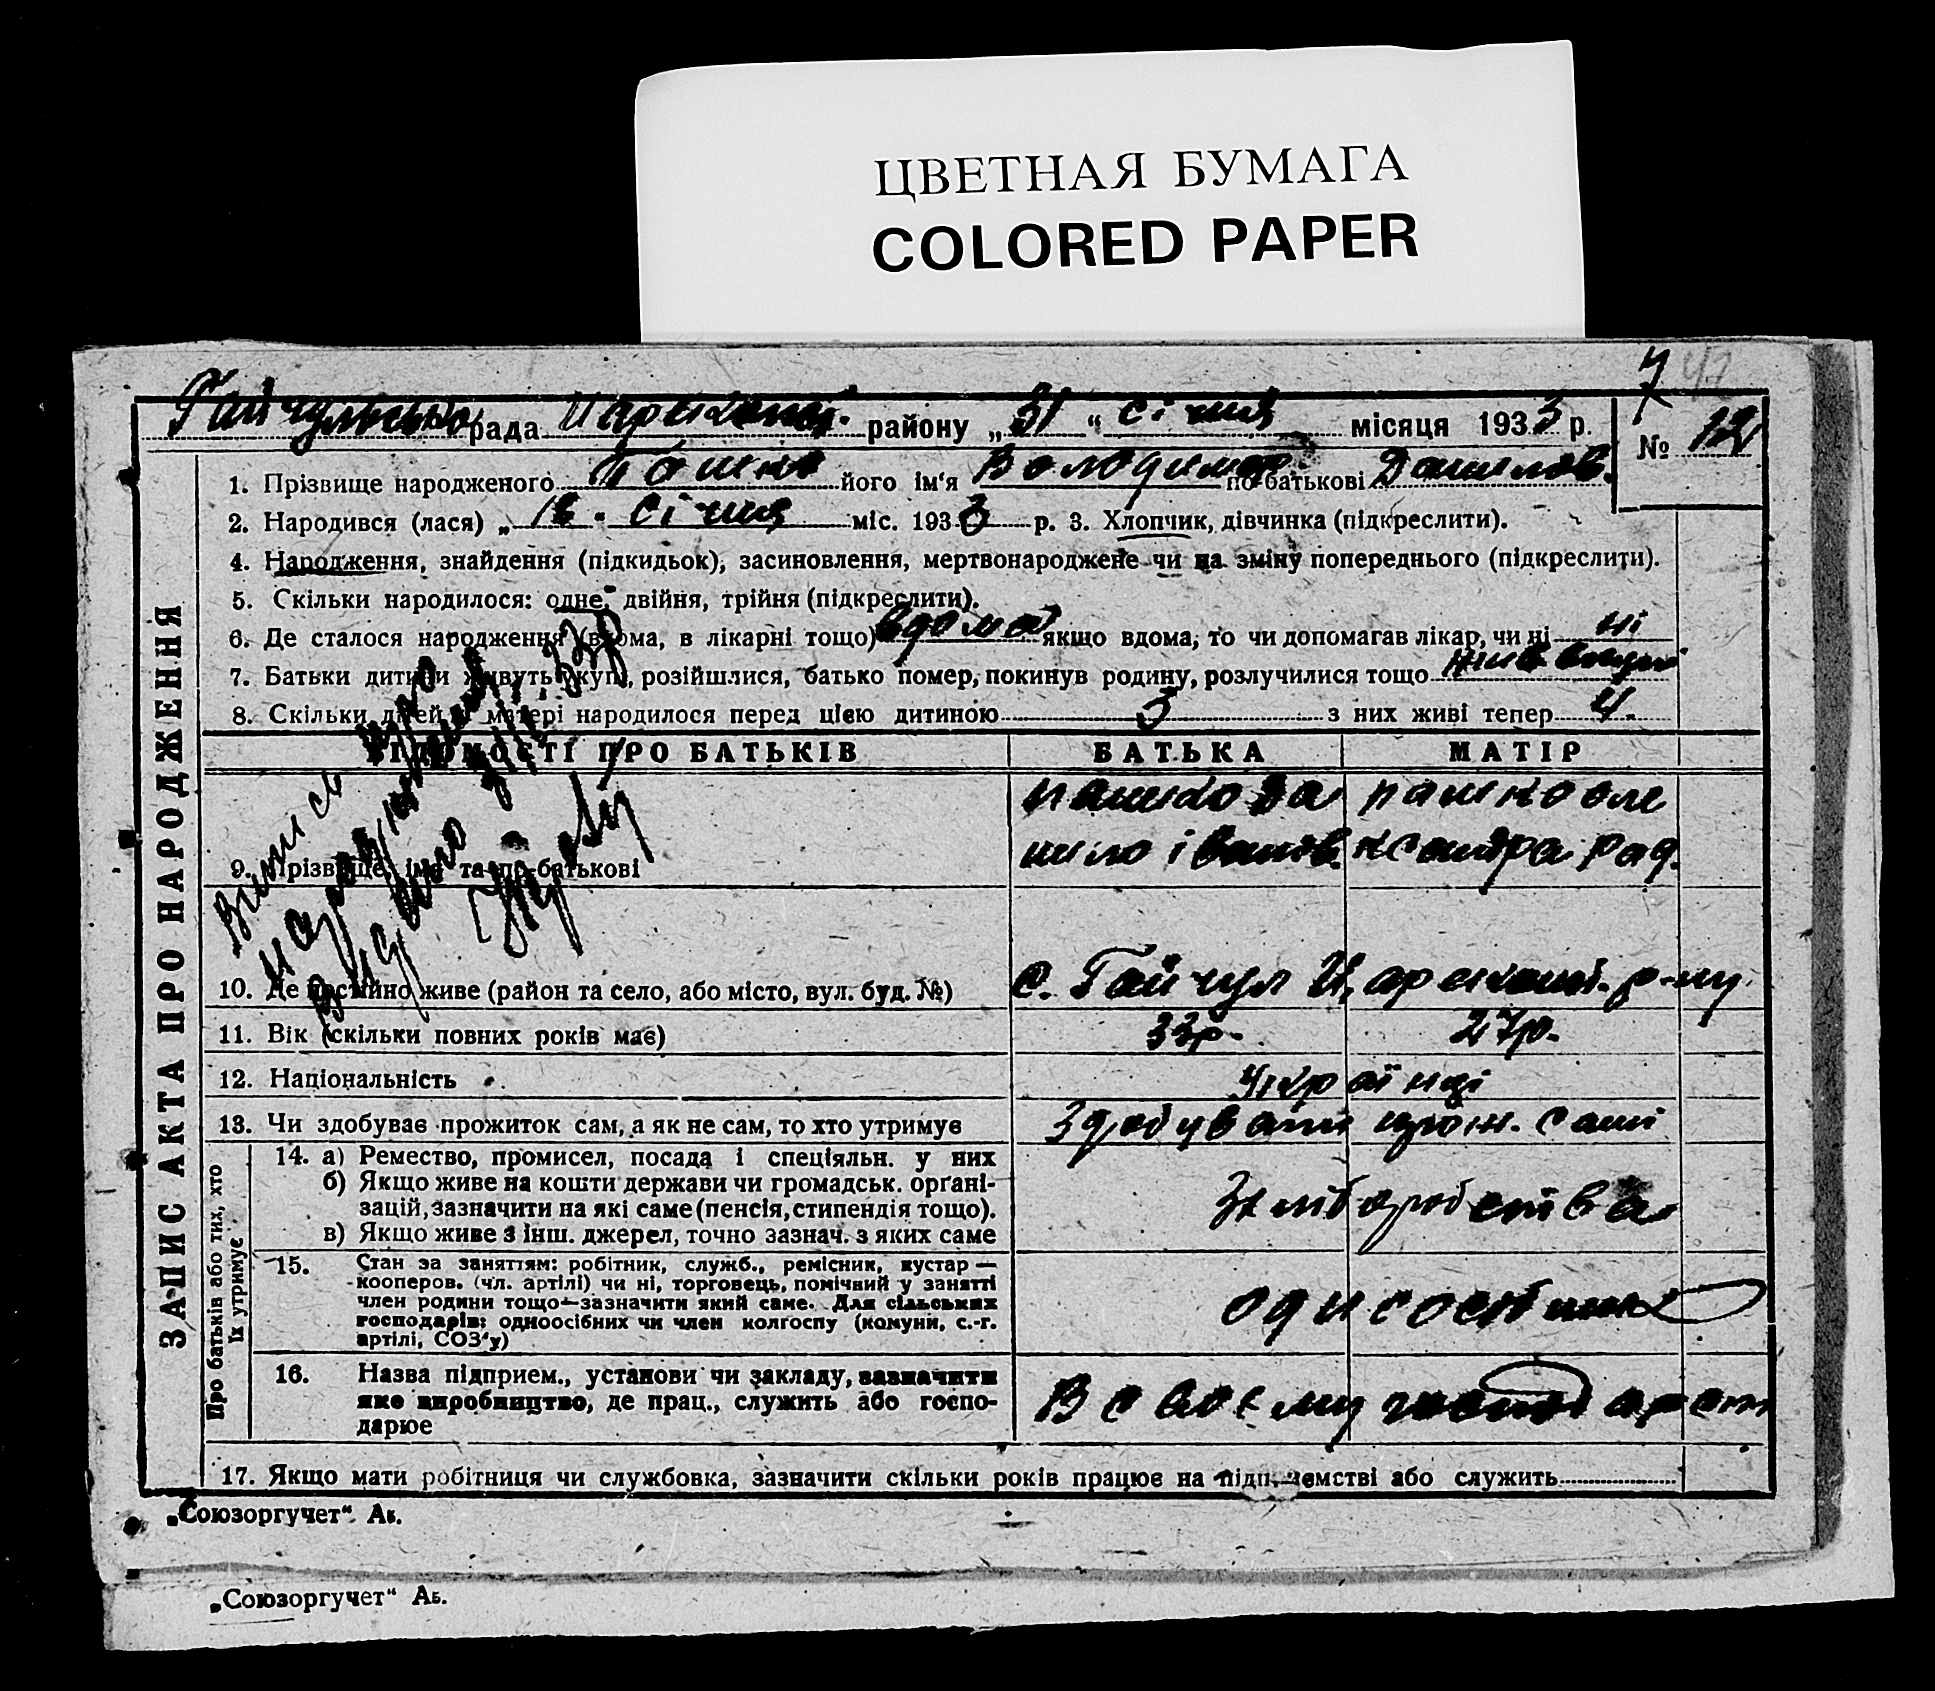 ЦВЕТНАЯ БУМАГА
COLORED PAPER
7 47
Гайчульська рада района „31“ січня місяця 1933 р. № 12
1. Прізвище народженого його ім'я Володимир по батькові Данилов.
2. Народився (лася) „16" січня міс. 1933 р. 3. Хлопчик, дівчинка (підкреслити).
4. Народження, знайдення (підкидьок), засиновлення, мертвонароджене чи на зміну попереднього (підкреслити).
5. Скільки народилося: одне, двійня, трійня (підкреслити).
6. Де сталося народження (вдома, в лікарні тощо) вдома якщо вдома, то чи допомагав лікар, чи ні ні
7. Батьки дитини живуть укупі, розійшлися, батько помер, покинув родину, розлучилися тощо
8. Скільки дітей у матері народилося перед цією дитиною 3 з них живі тепер 4.
ВІДОМОСТІ ПРО БАТЬКІВ БАТЬКА МАТІР
Пашко Да Пашко Оле
9. Прізвище, імя та по-батькові нило Іванов. ксандра Рад.
10. Де постійно живе (район та село, або місто, вул. буд. №) с. Гайчул р-ну
11. Вік (скільки повних років має) 33р. 27р.
12. Національність Українці
13. Чи здобуває прожиток сам, а як не сам, то хто утримує Здобували прож. самі
14. а) Ремество, промисел, посада і спеціяльн. у них
б) Якщо живе на кошти держави чи громадськ. орґані-
зацій, зазначити на які саме (пенсія, стипендія тощо).
в) Якщо живе з інш. джерел, точно зазнач. з яких саме
15. Стан за заняттям: робітник, служб., ремісник, кустар —
кооперов. (чл. артілі) чи ні, торговець, помічний у занятті
член родини тощо—зазначити який саме. Для сільських
господарів: одноосібних чи член колгоспу (комуни, с.-г.
артілі, СОЗ'у)
16. Назва підприєм., установи чи закладу, зазначити
яке виробництво, де прац., служить або госпо-
дарює
В своєму
17. Якщо мати робітниця чи службовка, зазначити скільки років працює на підприємстві або служить
ЗАПИС АКТА ПРО НАРОДЖЕННЯ
Про батьків або тих, хто
їх утримує
Випись про
народження
видано
„Союзоргучет“ Аб.
„Союзоргучет“ Аб.